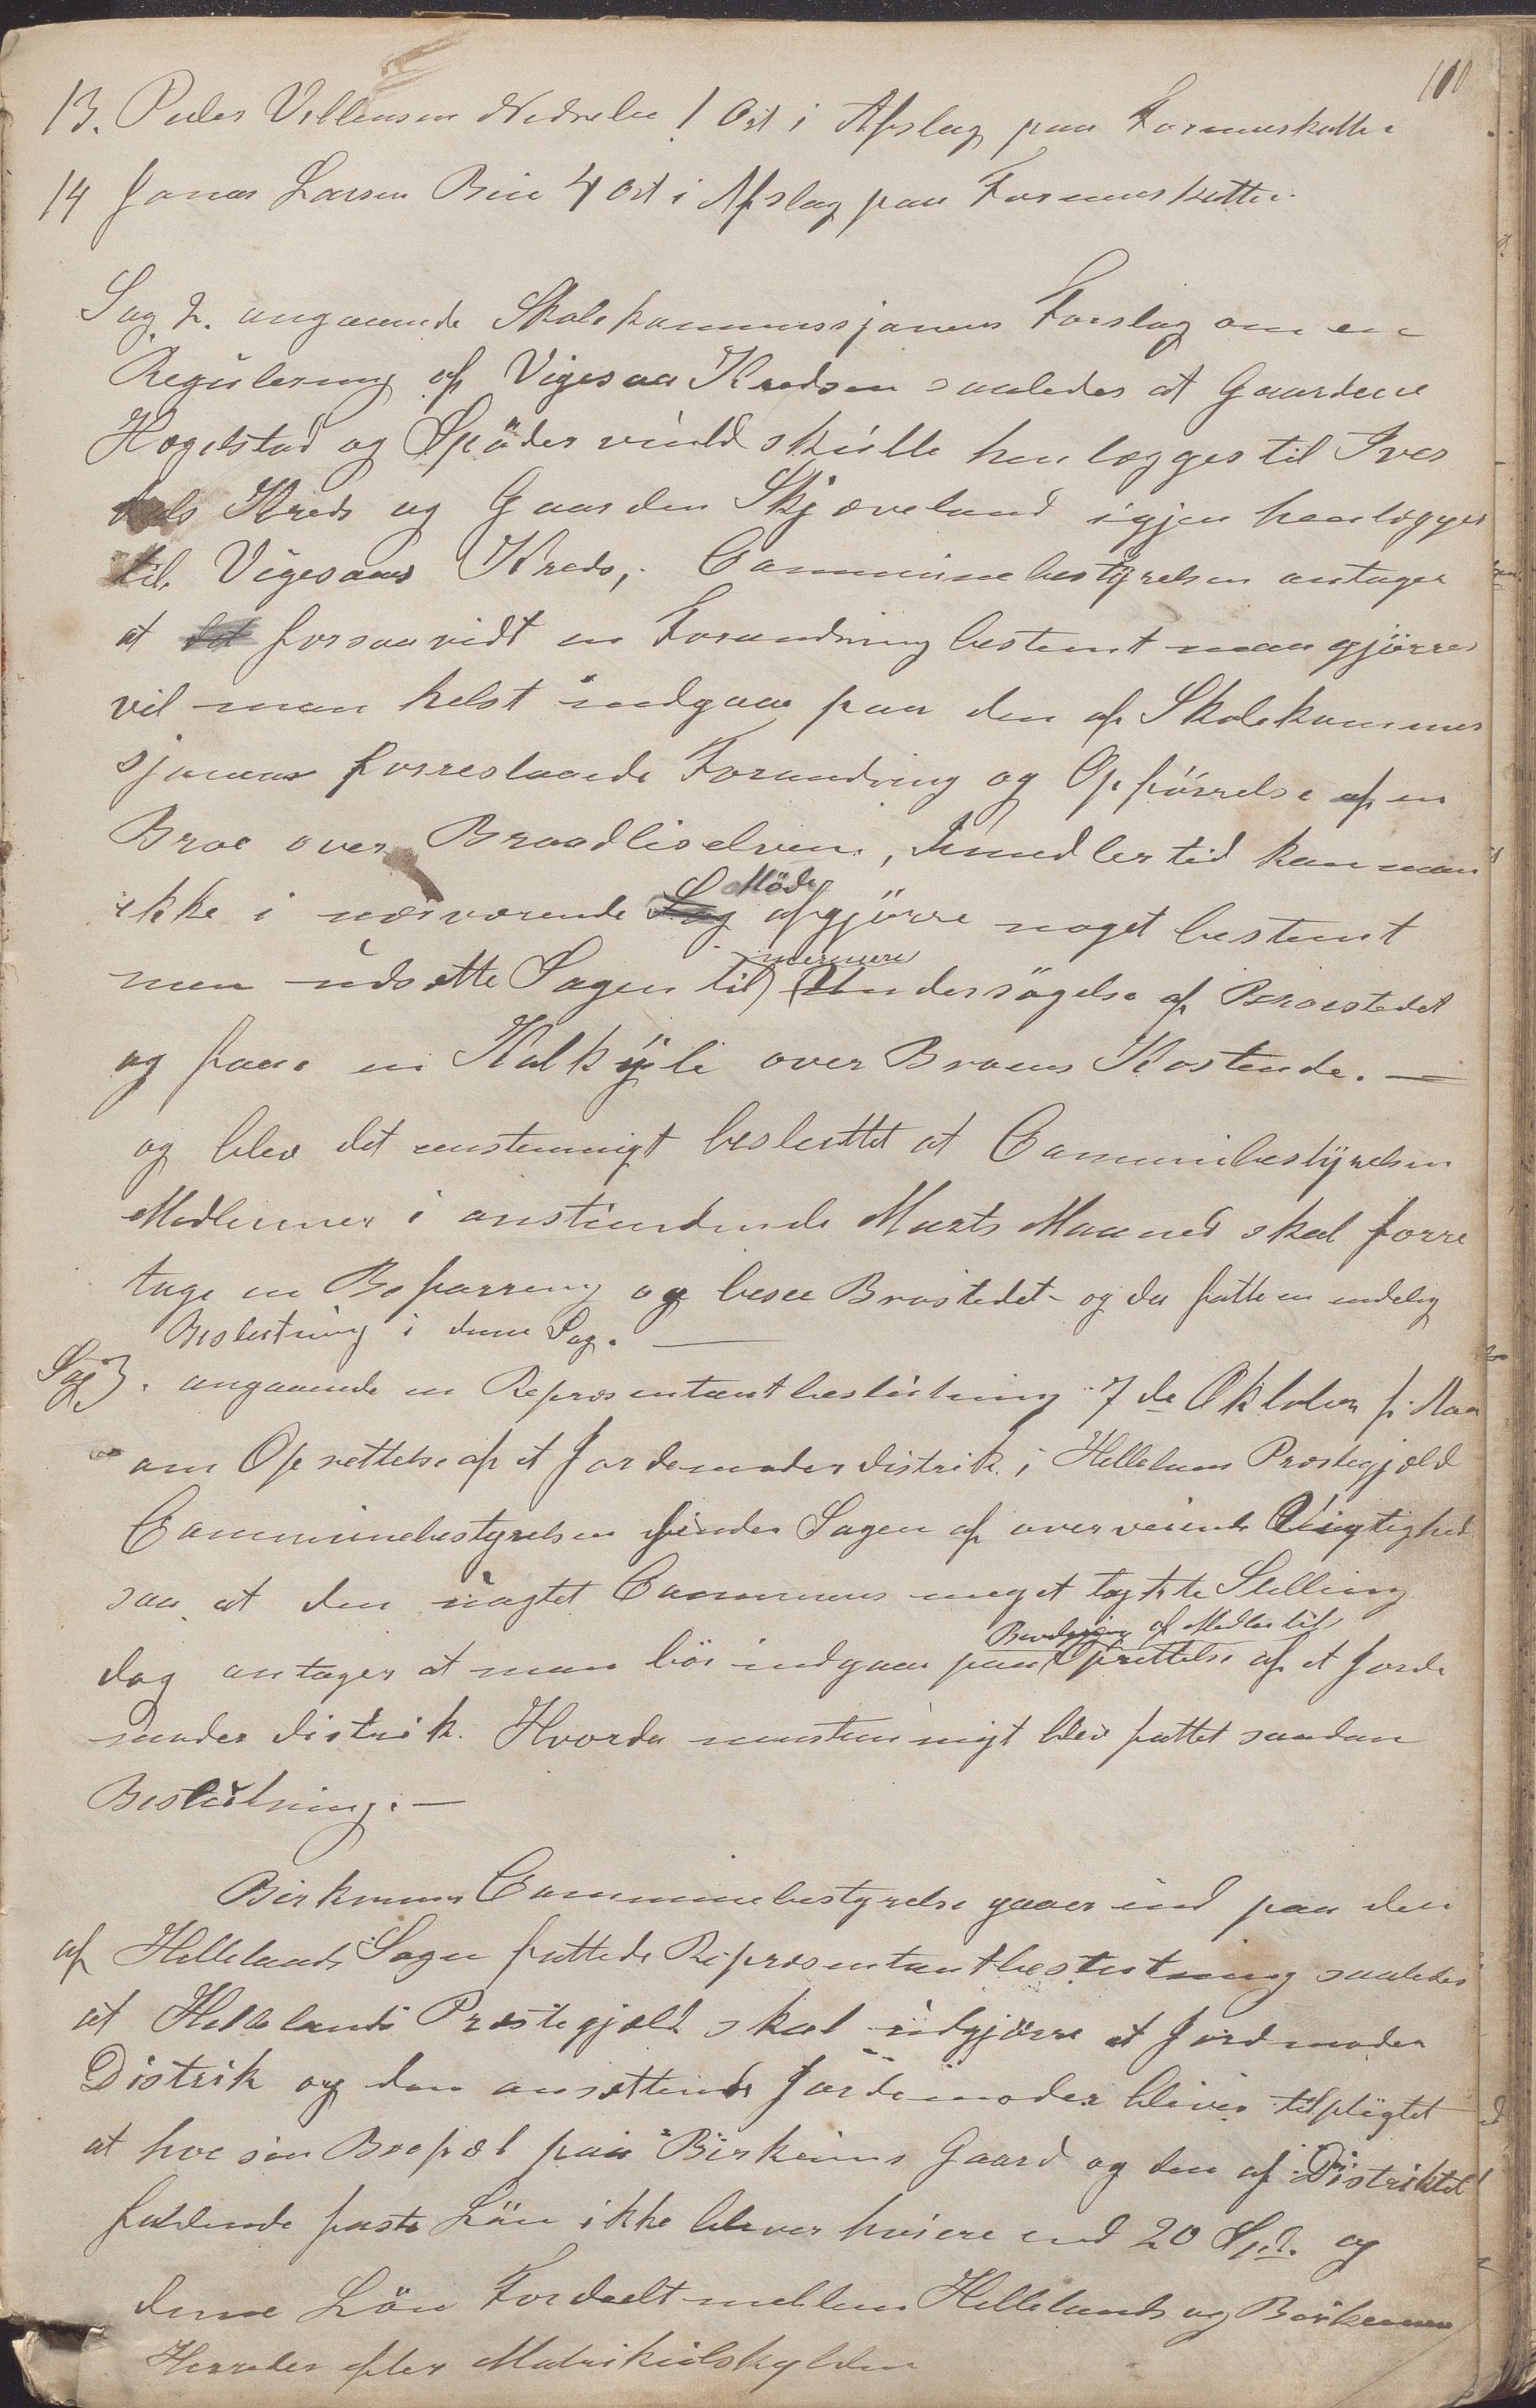 110
13. Peder Villumsen Nedrebø 1 Ort i Afslag paa Formueskatten
14 Jonas Larsen Bue 4 Ort i Afslag paa Formueskatten
Sag 2. angaaende Skolekommissjonens Forslag om en
Regulering af Vigesaa Kredsen saaledes at Gaardene
Hogelstad og Spödervold skulle henlægges til Ives
dals Kreds og Gaarden Skjæveland igjen henlægges
til Vigesaas Kreds, Communebestyrelsen antager
at det forsaavidt en Forandring bestemt maa gjörres
vil man helst indgaae paa den af Skolekommis
sjonens forreslaaede Forandring og Opförrelse af en
Broe over Braadlielven, Imidlertid kan man
ikke i nærværende Sag Möde afgjörre noget bestemt
men udsætte Sagen til nærmere Undersögelse af Broestedet
og faae en Kalkyle over Broens Kostende. —
og blev det eenstemmigt besluttet at Communebestyrelsen
Medlemmer i anstundende Marts Maaned skal forre
tage en Befarring og besee Brostedet og da fatte en endelig
Beslutning i denne Sag. —
Sag 3. angaaende en Repræsentantbeslutning 7de Oktober f. Aar
om Oprettelse af et Jordemoderdistrik i Hellelands Præstegjæld
Communebestyrelsen finder Sagen af overveiende Vigtighed
saa at den uagtet Communens meget trykte Stilling
dog antager at man bör indgaae paa af Midler til Oprettelse af et Jorde
moder distrik. Hvorda eenstemmigt blev fattet saadan
Beslutning. —
Birkrems Communebestyrelse gaaer ind paa den
af Hellelands Sogn fattede Repræsentantbeslutning saaledes
at Hellelands Præstegjæld skal udgjörre et Jordmoder
Distrik og den ansættende Jordemoder bliver tilpligtet
at have sin Boepæl paa Birkrims Gaard og den af Distriktet
faldende faste Lön ikke bliver høiere end 20 Spd. og
denne Lön Fordeelt mellem Hellelands og Birkrems
Herreder efter Matrikulskylden